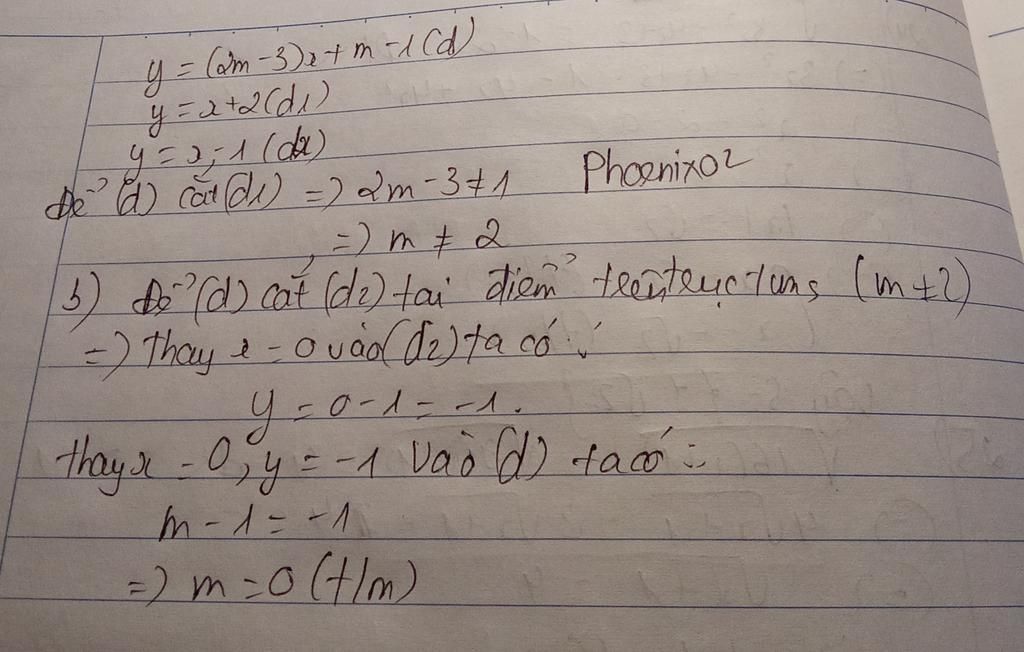 y = (2m - 3)x + m - 1 (d)
y = x + 2 (d1)
y = x - 1 (d2)
Để (d) cắt (d1) => 2m - 3 ≠ 1 Phoenix02
=> m ≠ 2
b) Để (d) cắt (d2) tại điểm trên trục tung (m ≠ 2)
=> Thay x = 0 vào (d2) ta có :
y = 0 - 1 = -1.
thay x = 0, y = -1 vào (d) ta có :
m - 1 = -1
=> m = 0 (t/m)